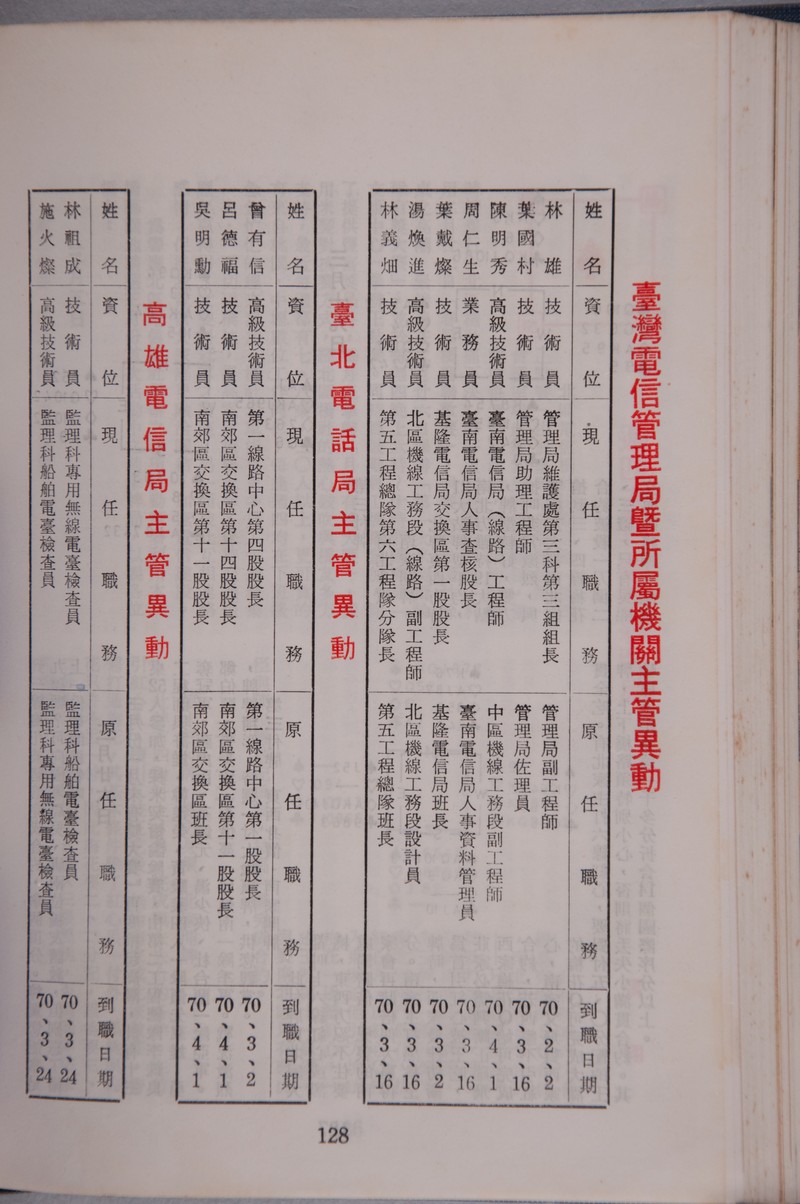 臺灣電信管理局暨所屬機關主管異動
姓名 資位 現任職務 原任職務 到職日期
林雄 技術員 管理局維護處第三科第三組組長 管理局副工程師 70、2、2
葉國村 技術員 管理局助理工程師 管理局佐理員 70、3、16
陳明秀 高級技術員 臺南電信局(線路)工程師 中區機線工務段副工程師 70、4、1
周仁生 業務員 臺南電信局人事查核股長 臺南電信局人事資料管理員 70、3、16
葉戴燦 技術員 基隆電信局交換區第一股股長 基隆電信局班長 70、3、2
湯煥進 高級技術員 北區機線工務段(線路)副工程師 北區機線工務段設計員 70、3、16
林義畑 技術員 第五工程總隊第六工程隊分隊長 第五工程總隊班長 70、3、16
臺北電話局主管異動
姓名 資位 現任職務 原任職務 到職日期
曾有信 高級技術員 第一線路中心第四股股長 第一線路中心第一股股長 70、3、2
呂德福 技術員 南郊區交換區第十四股股長 南郊區交換區第十一股股長 70、4、1
吳明勳 技術員 南郊區交換區第十一股股長 南郊區交換區班長 70、4、1
高雄電信局主管異動
姓名 資位 現任職務 原任職務 到職日期
林祖成 技術員 監理科專用無線電臺檢查員 監理科船舶電臺檢查員 70、3、24
施火燦 高級技術員 監理科船舶電臺檢查員 監理科專用無線電臺檢查員 70、3、24
128